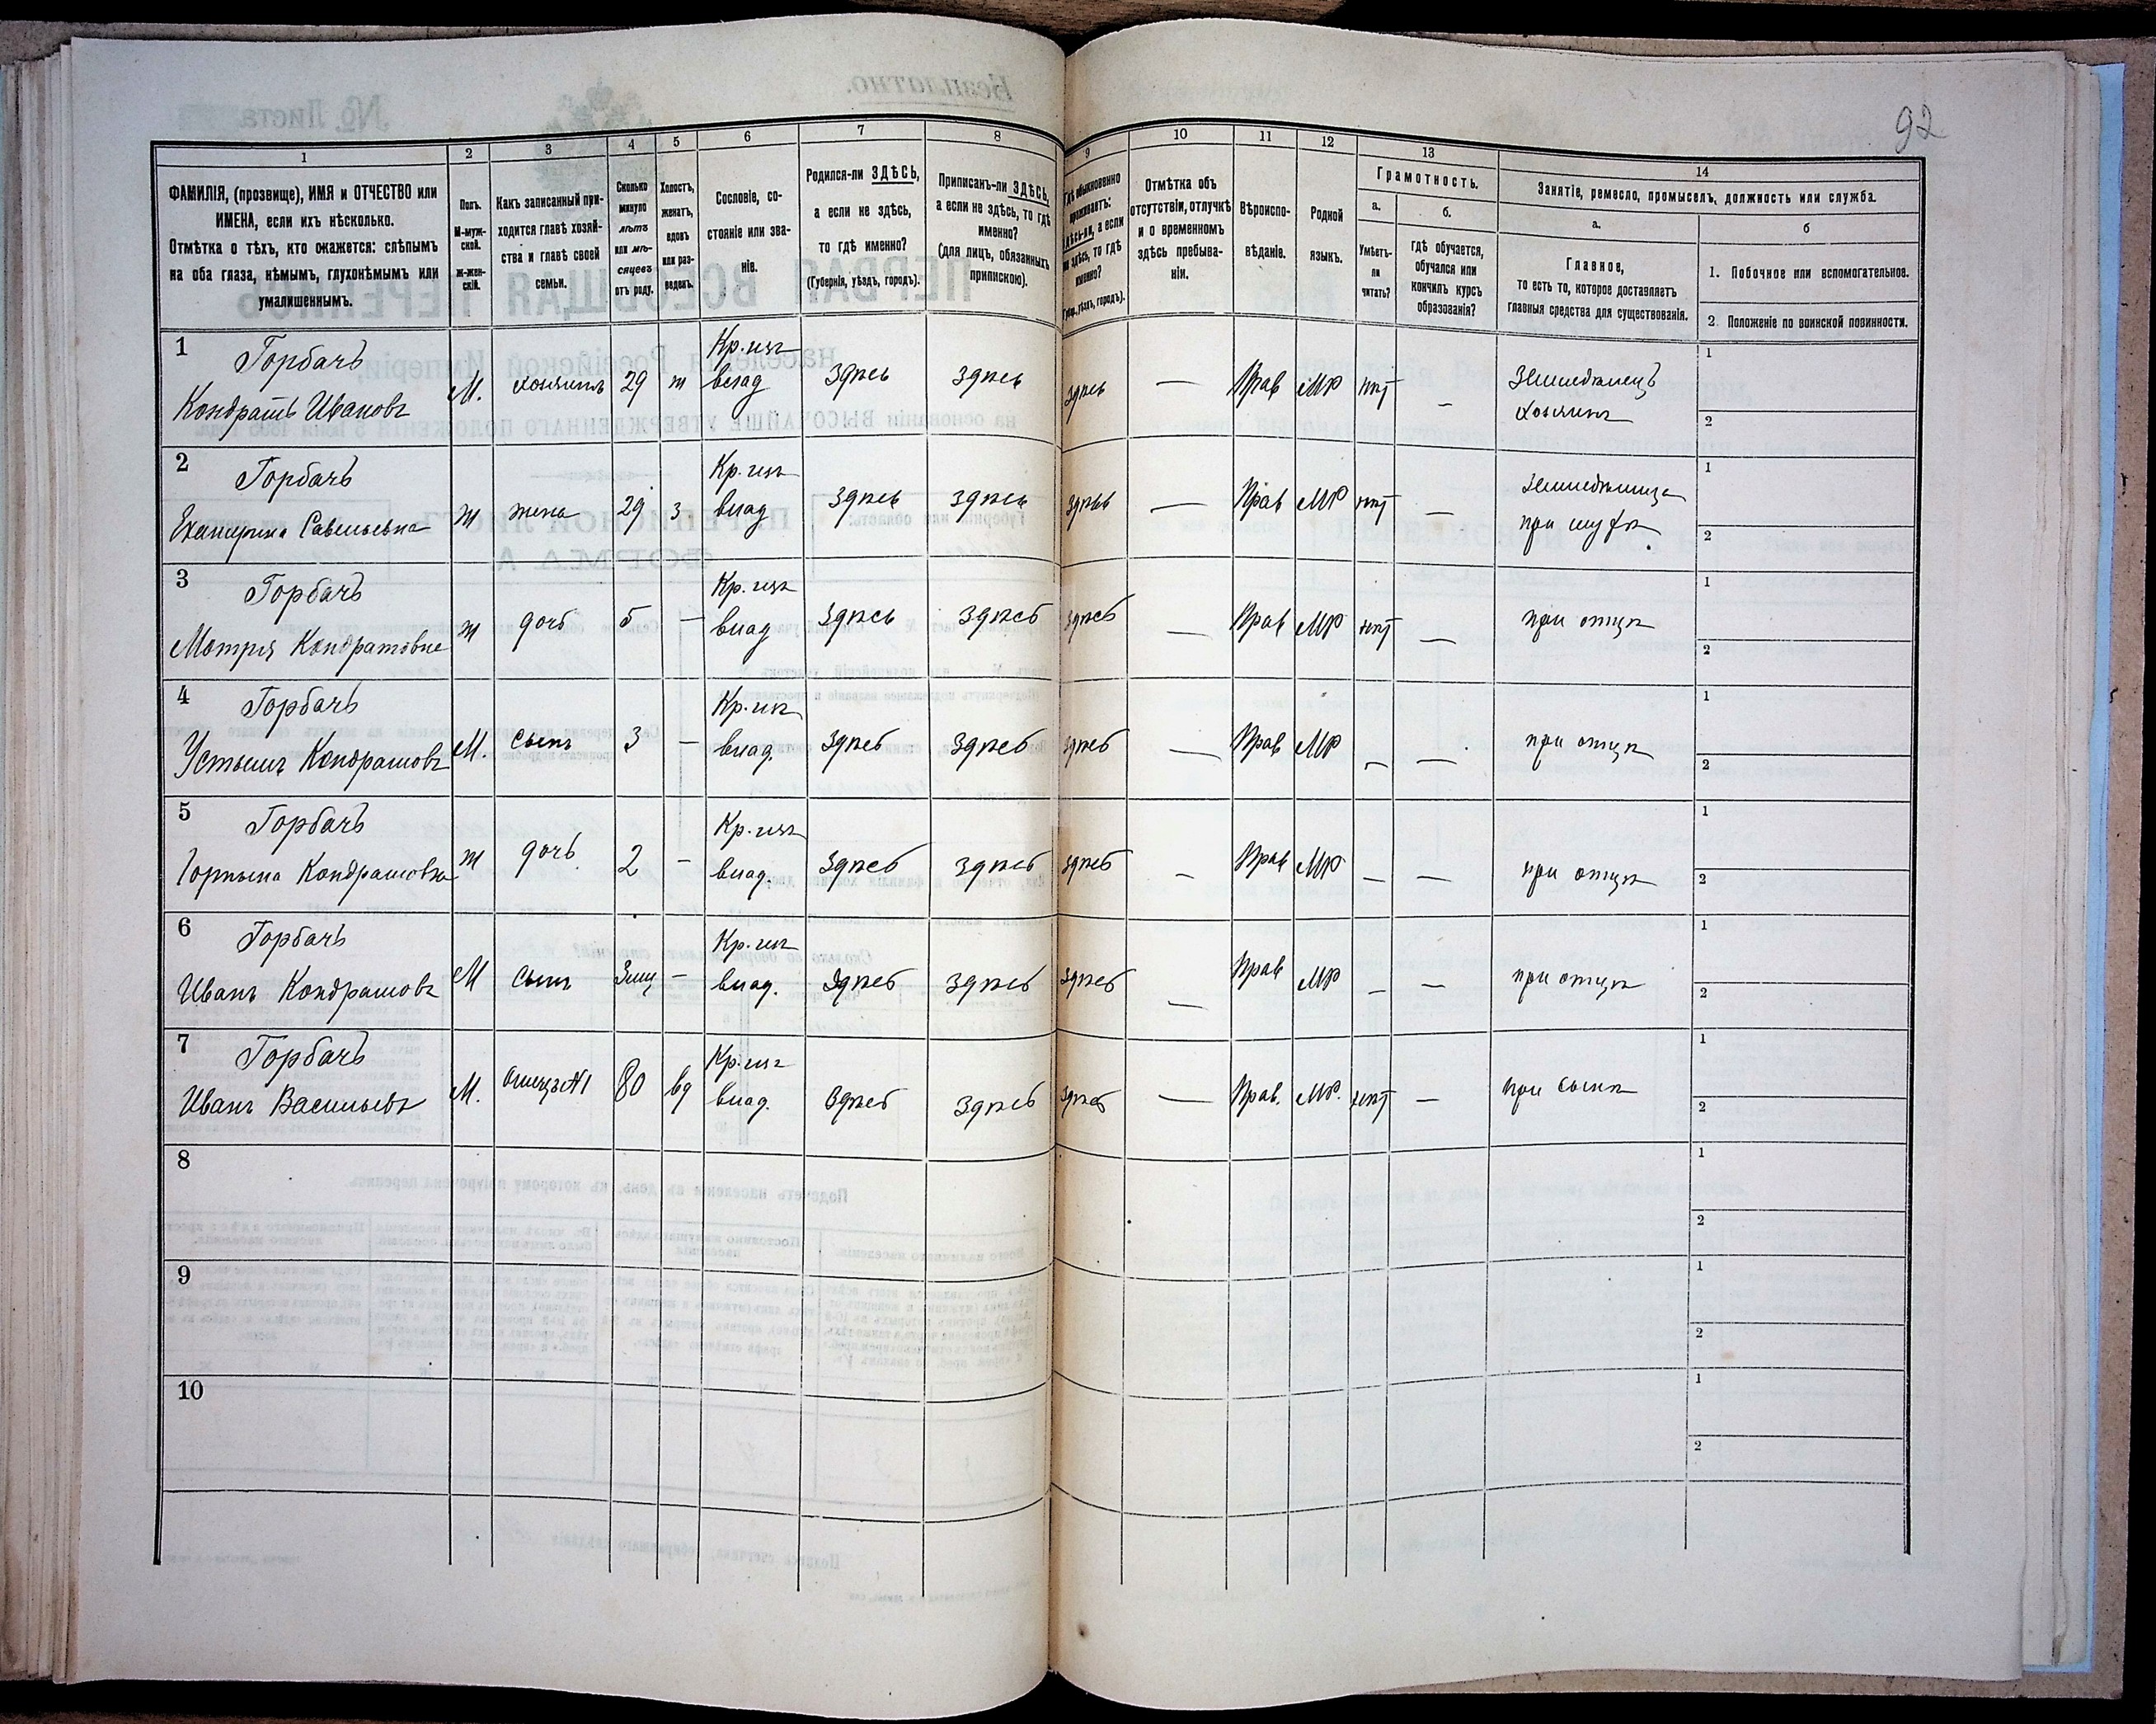 92
1
2
3
4
5
6
7
8
9
10
11
12
13
14
ФАМИЛІЯ, (прозвище), ИМЯ и ОТЧЕСТВО или
ИМЕНА, если ихъ нѣсколько.
Отмѣтка о тѣхъ, кто окажется: слѣпымъ
на оба глаза, нѣмымъ, глухонѣмымъ или
умалишеннымъ.
Полъ.
М-муж-
ской.
Ж-жен-
скій.
Какъ записанный при-
ходится главѣ хозяй-
ства и главѣ своей
семьи.
Сколько
минуло
лѣтъ
или мѣ-
сяцевъ
отъ роду.
Холостъ,
женатъ,
вдовъ
или раз-
веденъ.
Сословіе, со-
стояніе или зва-
ніе.
Родился-ли ЗДѢСЬ,
а если не здѣсь,
то гдѣ именно?
(Губернія, уѣздъ, городъ).
Приписанъ-ли ЗДѢСЬ,
а если не здѣсь, то гдѣ
именно?
(для лицъ, обязанныхъ
припискою).
Гдѣ обыкновенно
проживаетъ:
здѣсь-ли, а если
не здѣсь, то гдѣ
именно?
(Губ., уѣздъ, городъ).
Отмѣтка объ
отсутствіи, отлучкѣ
и о временномъ
здѣсь пребыва-
ніи.
Вѣроиспо-
вѣданіе.
Родной
языкъ.
Грамотность.
а.
Умѣетъ-
ли
читать?
б.
гдѣ обучается,
обучался или
кончилъ курсъ
образованія?
Занятіе, ремесло, промыселъ, должность или служба.
а.
Главное,
то есть то, которое доставляетъ
главныя средства для существованія.
б
1. Побочное или вспомогательное.
2. Положеніе по воинской повинности.
1 Горбачъ
Кондратъ Ивановъ
М. хозяинъ 29 ж Кр. изъ
влад здѣсь здѣсь здѣсь — Прав МР нѣт —
Земледѣлецъ
хозяинъ
1
2
2 Горбачъ
Екатерина Савельевна
ж жена 29 з Кр. изъ
влад здѣсь здѣсь здѣсь — Прав МР нѣт —
при мужѣ
1
2
3 Горбачъ
Мотря Кондратовна
ж дочь 5 — Кр. изъ
влад здѣсь здѣсь здѣсь — Прав МР нѣт —
при отцѣ
1
2
4 Горбачъ
Устынъ Кондратовъ
М. сынъ 3 — Кр. изъ
влад. здѣсь здѣсь здѣсь — Прав МР — —
при отцѣ
1
2
5 Горбачъ
Горпына Кондратовна
ж дочь. 2 — Кр. изъ
влад. здѣсь здѣсь здѣсь — Прав МР — —
при отцѣ
1
2
6 Горбачъ
Иванъ Кондратовъ
М сынъ 3 мц — Кр. изъ
влад. здѣсь здѣсь здѣсь — Прав МР — —
при отцѣ
1
2
7 Горбачъ
Иванъ Васильевъ
М. отецъ №1 80 вд Кр. изъ
влад. здѣсь здѣсь здѣсь — Прав. МР. нѣт —
при сынѣ
1
2
8
1
2
9
1
2
10
1
2